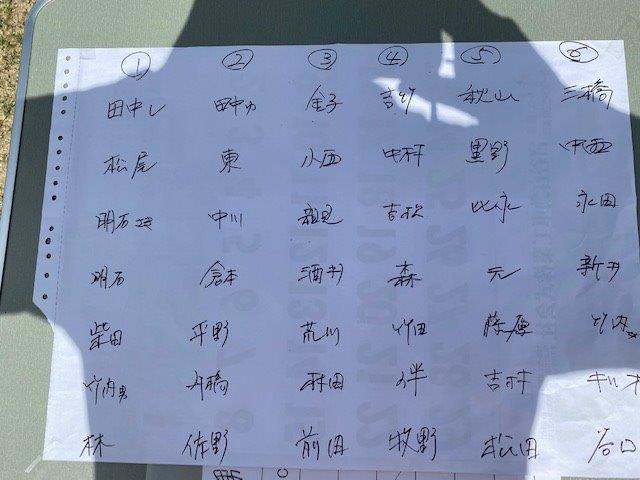 ① ② ③ ④ ⑤ ⑥
田中し 田中カ 金子 吉川 秋山 三橋
松尾 東 小西 中村 里野 中西
明石 中川 吉松 比永 永田
明石 倉本 酒井 森 元 新井
柴田 平野 荒川 竹田 藤原 竹内女
竹内男 舟橋 村田 伴 吉村
林 佐野 前田 牧野 松田 谷口